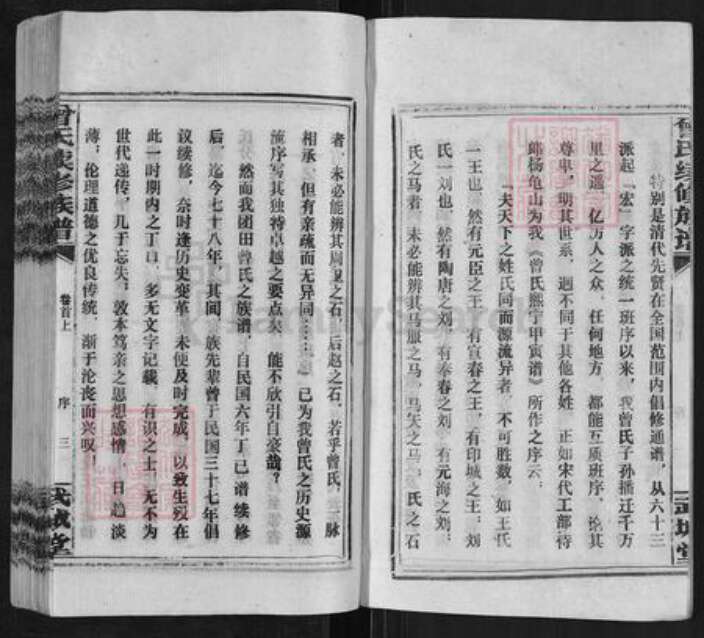 曾氏续修族谱
特别是清代先贤在全国范围内倡修通谱，从六十三
派起「宏」字派之统一班序以来，我曾氏子孙播迁千万
里之遥，亿万人之众，任何地方，都能互质班序，论其
尊卑，明其世系，迥不同于其他各姓，正如宋代工部侍
郎杨龟山为我《曾氏熙宁甲寅谱》所作之序云：
「夫天下之姓氏同而源流异者，不可胜数，如王氏
一王也，然有元臣之王，有宜春之王，有印城之王；刘
氏一刘也，然有陶唐之刘，有奉春之刘，有元海之刘；
氏之马者，未必能辨其马服之马，马矢之马。氏之石
三 武城堂
者，未必能辨其周卫之石，后赵之石，若乎曾氏，一脉
相承，但有亲疏而无异同……」已为我曾氏之历史源
流序写其独特卓越之要点矣，能不欣引自豪哉？
然而我团田曾氏之族谱，自民国六年丁巳谱续修
后，迄今七十八年，其间，族先辈曾于民国三十七年倡
议续修，奈时逢历史变革，未便及时完成，以致生殁在
此一时期内之丁口，多无文字记载，有识之士，无不为
世代递传，几于忘失，敦本笃亲之思想感情，日趋淡
薄，伦理道德之优良传统，渐于沦丧而兴叹！
曾氏续修族谱
卷首上
序
三
武城堂
FamilySearch